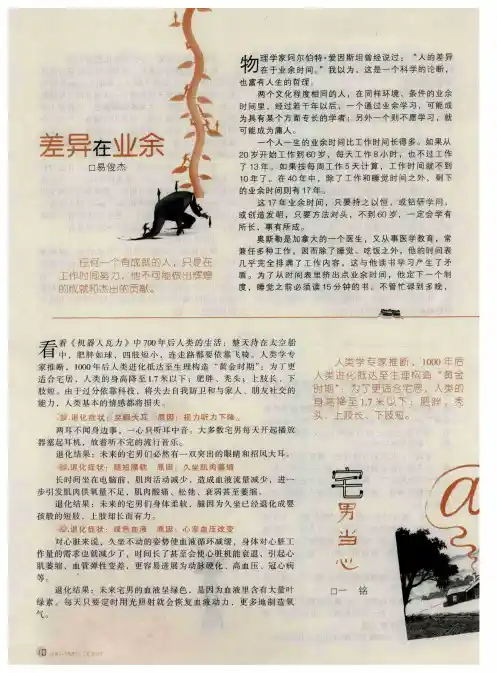 差异在业余
□易俊杰
任何一个有成就的人，只是在
工作时间努力，他不可能做出辉煌
的成就和杰出的贡献。
物理学家阿尔伯特·爱因斯坦曾经说过：“人的差异
在于业余时间。”我以为，这是一个科学的论断，
也富有人生的哲理。
两个文化程度相同的人，在同样环境、条件的业余
时间里，经过若干年以后，一个通过业余学习，可能成
为具有某个方面专长的学者；另外一个则不愿学习，就
可能成为庸人。
一个人一生的业余时间比工作时间长得多。如果从
20岁开始工作到60岁，每天工作8小时，也不过工作
了13年。如果按每周工作5天计算，工作时间就不到
10年了。在40年中，除了工作和睡觉时间之外，剩下
的业余时间则有17年。
这17年业余时间，只要持之以恒，或钻研学问，
或创造发明，只要方法对头，不到60岁，一定会学有
所长，事有所成。
奥斯勒是加拿大的一个医生，又从事医学教育，常
兼任多种工作，因而除了睡觉、吃饭之外，他的时间表
几乎完全排满了工作内容，这与他读书学习产生了矛
盾。为了从时间表里挤出点业余时间，他定下一个制
度，睡觉之前必须读15分钟的书。不管忙碌到多晚，
看看《机器人瓦力》中700年后人类的生活：整天待在太空船
中，肥胖如球，四肢短小，连走路都要依靠飞椅。人类学专
家推断，1000年后人类进化抵达至生理构造“黄金时期”：为了更
适合宅居，人类的身高降至1.7米以下；肥胖、秃头；上肢长、下
肢短。由于过分依靠科技，将失去自我防卫和与家人、朋友社交的
能力，人类基本的情感都将损失。
退化症状：突眼大耳 原因：视力听力下降
两耳不闻身边事，一心只听耳中音，大多数宅男每天开起播放
器塞起耳机，放着听不完的流行音乐。
退化结果：未来的宅男们必然有一双突出的眼睛和招风大耳。
退化症状：腿短腰软 原因：久坐肌肉萎缩
长时间坐在电脑前，肌肉活动减少，造成血液流量减少，进一
步引发肌肉供氧量不足，肌肉酸痛、松弛、衰弱甚至萎缩。
退化结果：未来的宅男们身体柔软，腿因为久坐已经退化成婴
孩般的短肢，上肢却长而有力。
退化症状：绿色血液 原因：心率血压改变
对心脏来说，久坐不动的姿势使血液循环减缓，身体对心脏工
作量的需求也就减少了，时间长了甚至会使心脏机能衰退，引起心
肌萎缩，血管弹性变差，更容易进展为动脉硬化、高血压、冠心病
等。
退化结果：未来宅男的血液呈绿色，是因为血液里含有大量叶
绿素。每天只要定时用光照射就会恢复血液动力，更多地制造氧
气。
人类学专家推断，1000年后
人类进化抵达至生理构造“黄金
时期”：为了更适合宅居，人类的
身高降至1.7米以下；肥胖、秃
头；上肢长、下肢短。
宅男当心
□一 铭
@